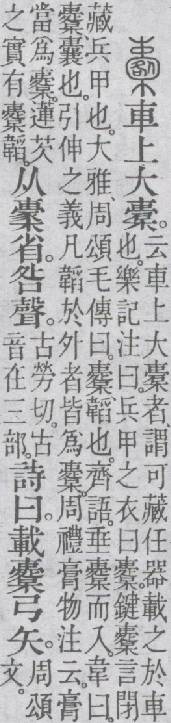 車上大橐。
云車上大橐者、謂可藏任器載之於車
也。樂記注曰。兵甲之衣曰櫜。鍵櫜言閉
藏兵甲也。大雅、周頌毛傳曰。櫜、韜也。齊語。垂櫜而入。韋曰。
櫜囊也。引伸之義凡韜於外者皆爲櫜。周禮膏物注云。膏
當爲櫜。蓮芡
之實有櫜韜。
从㯻省。咎聲。
古勞切。古
音在三部。
詩曰。載櫜弓矢。
周頌
文。